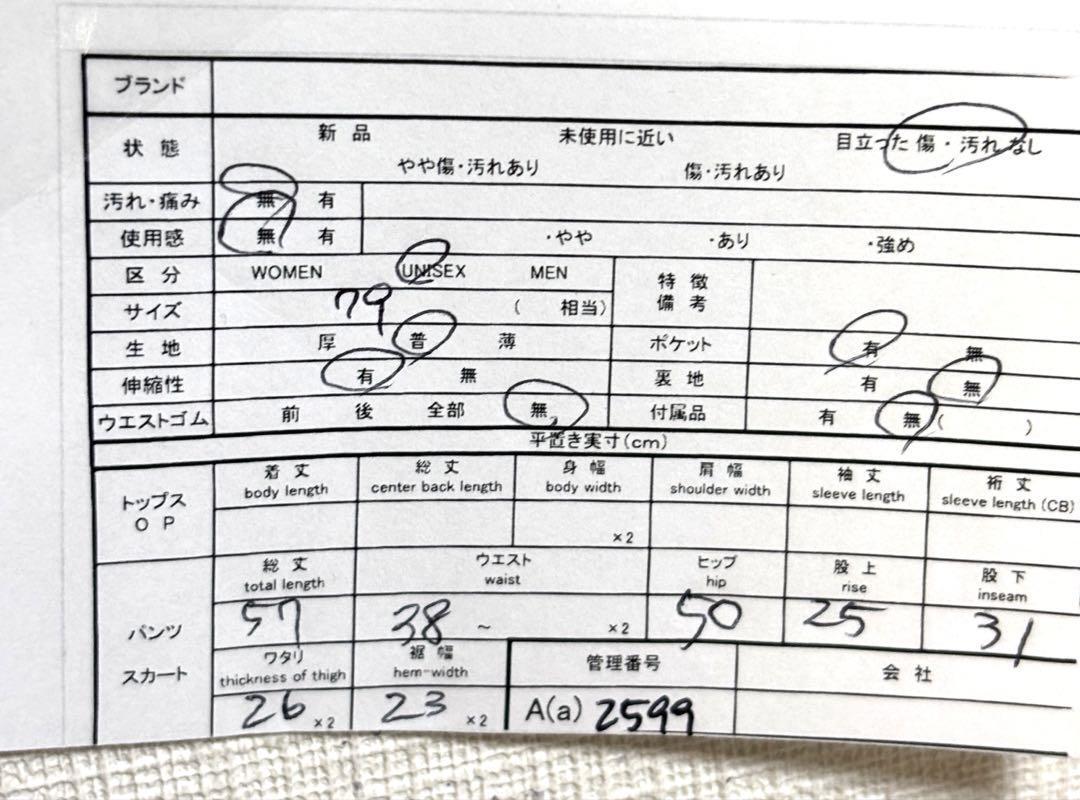 ブランド
状態 新品 未使用に近い 目立った傷・汚れなし
やや傷・汚れあり 傷・汚れあり
汚れ・痛み 無 有
使用感 無 有 ・やや ・あり ・強め
区分 WOMEN UNISEX MEN 特徴
備考
サイズ 79 ( 相当)
生地 厚 普 薄 ポケット 有 無
伸縮性 有 無 裏地 有 無
ウエストゴム 前 後 全部 無 付属品 有 無 ( )
平置き実寸(cm)
トップス
OP
着丈 総丈 身幅 肩幅 袖丈 裄丈
body length center back length body width shoulder width sleeve length sleeve length (CB)
×2
パンツ
スカート
総丈 ウエスト ヒップ 股上 股下
total length waist hip rise inseam
57 38 ~ ×2 50 25 31
ワタリ 裾幅 管理番号 会社
thickness of thigh hem-width
26 ×2 23 ×2 A(a) 2599